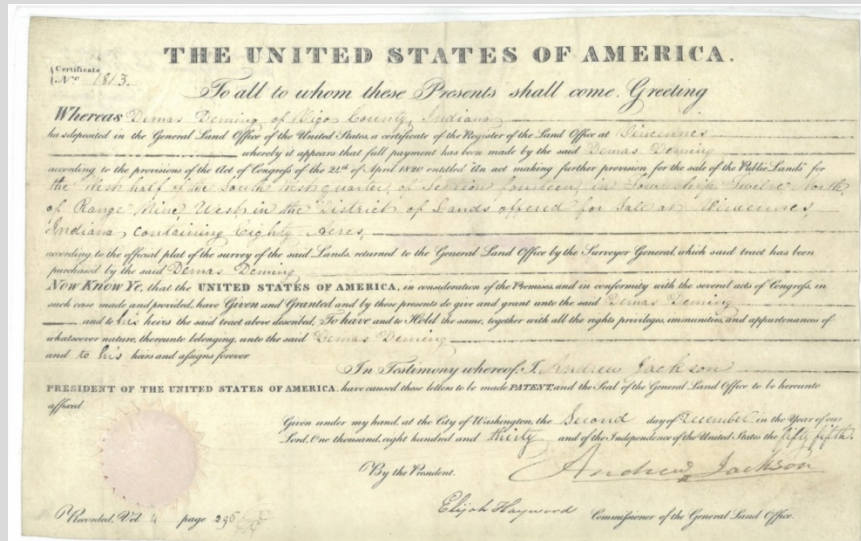 THE UNITED STATES OF AMERICA.
Certificate
No. 1813.
To all to whom these Presents shall come, Greeting
Whereas Demas Deming of Vigo County, Indiana
has deposited in the General Land Office of the United States, a certificate of the Register of the Land Office at Vincennes
whereby it appears that full payment has been made by the said Demas Deming
according to the provisions of the Act of Congress of the 24th of April 1820 entitled "An act making further provision for the sale of the Public Lands" for
the West half of the South West quarter, of Section fourteen, in Township Twelve North,
of Range Nine West, in the District of Lands offered for Sale at Vincennes,
Indiana, Containing Eighty Acres,
according to the official plat of the survey of the said Lands, returned to the General Land Office by the Surveyor General, which said tract has been
purchased by the said Demas Deming
Now Know Ye, that the UNITED STATES OF AMERICA, in consideration of the Premises, and in conformity with the several acts of Congress, in
such case made and provided, have Given and Granted and by these presents do give and grant unto the said Demas Deming
and to his heirs the said tract above described, To have and to Hold the same, together with all the rights privileges, immunities, and appurtenances of
whatsoever nature, thereunto belonging, unto the said Demas Deming
and to his heirs and assigns forever
In Testimony whereof, I, Andrew Jackson
PRESIDENT OF THE UNITED STATES OF AMERICA, have caused these letters to be made PATENT, and the Seal of the General Land Office to be hereunto
affixed
Given under my hand, at the City of Washington, the Second day of December in the Year of our
Lord, One thousand, eight hundred and thirty and of the Independence of the United States the fifty fifth.
By the President.
Andrew Jackson
Elijah Hayward Commissioner of the General Land Office.
Recorded, Vol 4 page 296